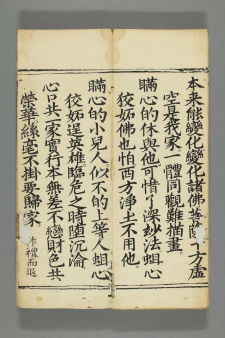 本来能變化變化諸佛菩薩十方虛
空是我家一體同觀難描畫
瞞心的休與他可惜了深妙法蛆心
狡妬佛也怕西方淨土不用他
瞞心的小兒人似不的上等人蛆心
狡妬逞英雄臨危之時隨沉淪
心口共一家實行本無差不戀財色共
榮華絲毫不掛要歸家 作禮而退